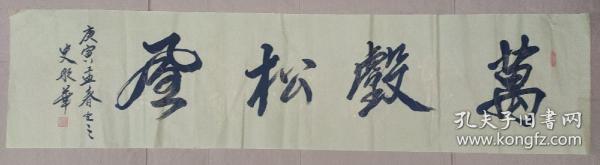 萬壑松風
庚寅孟春书之
史 華
孔夫子旧书网
www.kongfz.com